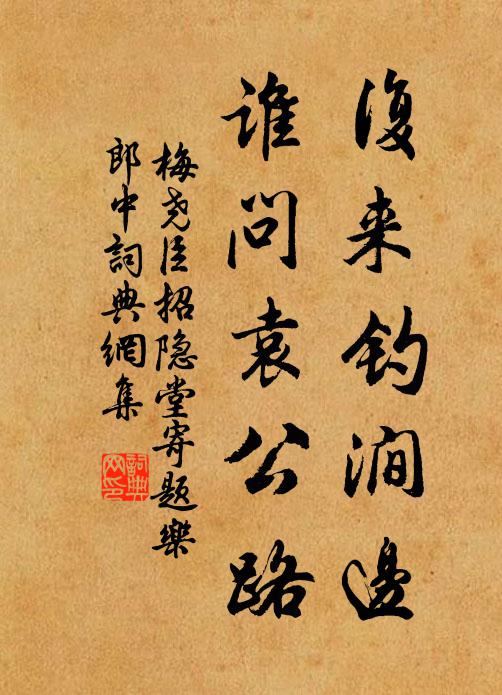 復来釣澗邊
誰問袁公路
梅尧臣招隐堂寄題樂
郎中詞典網集
詞典网印